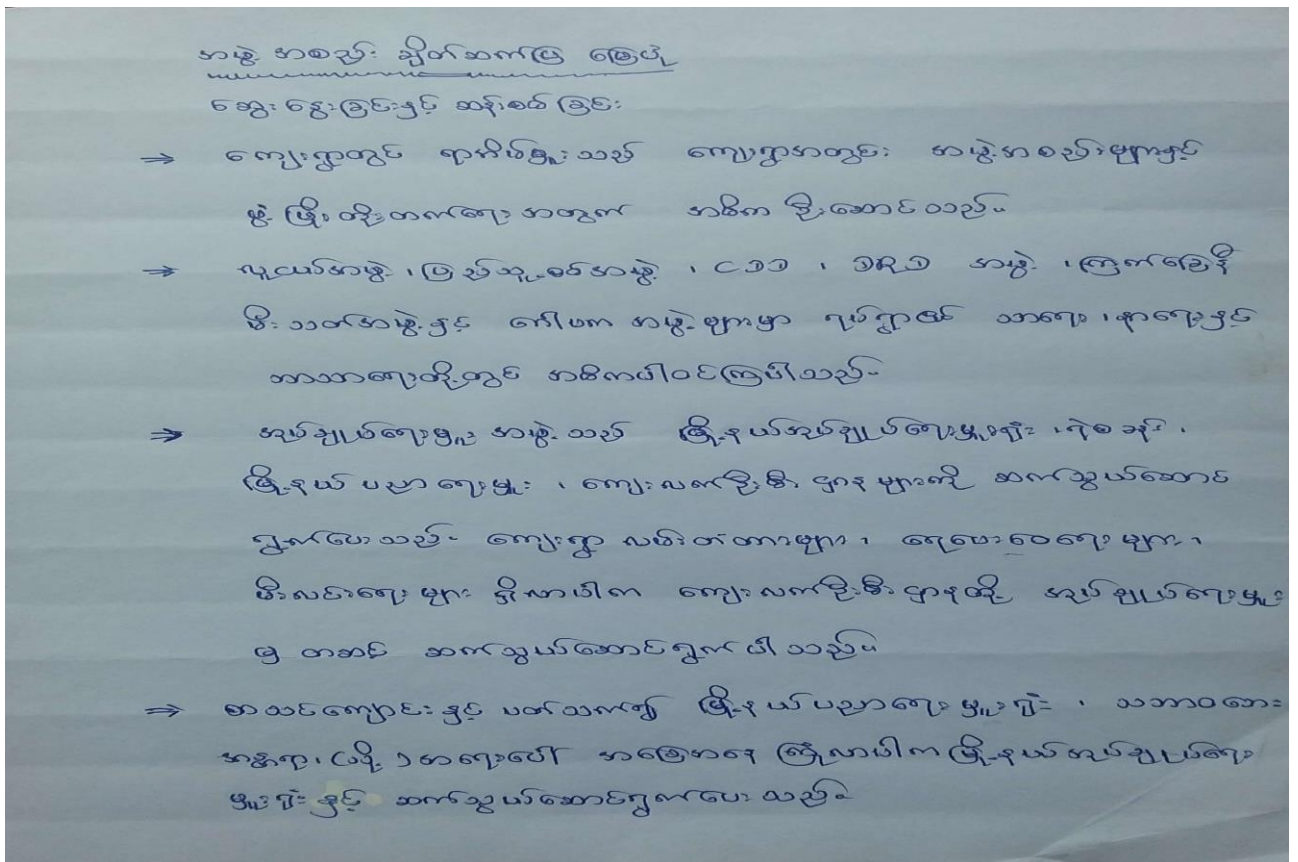 အဖွဲ့ အစည်း ချိတ်ဆက်ပြ မြေပုံ
ဆွေး နွေးခြင်းနှင့် ဆန်းစစ်ခြင်း
⇒ ကျေးရွာတွင် ရာအိမ်မှူးသည် ကျေးရွာအတွင်း အဖွဲ့အစည်းများနှင့်
ဖွံ့ဖြိုးတိုးတက်ရေး အတွက် အဓိက ဦးဆောင်သည်။
⇒ လူငယ်အဖွဲ့၊ ပြည်သူ့စစ်အဖွဲ့၊ CDD၊ DRD အဖွဲ့၊ ကြက်ခြေနီ
မီးသတ်အဖွဲ့နှင့် ဂေါပက အဖွဲ့များမှာ ရပ်ရွာ၏ သာရေး၊ နာရေးနှင့်
ဘာသာရေးတို့တွင် အဓိကပါဝင်ကြပါသည်။
⇒ အုပ်ချုပ်ရေးမှူး အဖွဲ့သည် မြို့နယ်အုပ်ချုပ်ရေးမှူးရုံး၊ ရဲစခန်း၊
မြို့နယ် ပညာရေးမှူး၊ ကျေးလက်ဦးစီး ဌာနများကို ဆက်သွယ်ဆောင်
ရွက်ပေးသည်။ ကျေးရွာ လမ်းတံတားများ၊ ရေပေးဝေရေးများ၊
မီးလင်းရေးများ ရှိလာပါက ကျေးလက်ဦးစီးဌာနတို့ အုပ်ချုပ်ရေးမှူး
မှ တဆင့် ဆက်သွယ်ဆောင်ရွက်ပါသည်။
⇒ စာသင်ကျောင်းနှင့် ပတ်သက်၍ မြို့နယ်ပညာရေးမှူးရုံး၊ သဘာဝဘေး
အန္တရာယ်(သို့)အရေးပေါ် အခြေအနေ ကြုံလာပါက မြို့နယ်အုပ်ချုပ်ရေး
မှူးရုံးနှင့် ဆက်သွယ်ဆောင်ရွက်ပေးသည်။